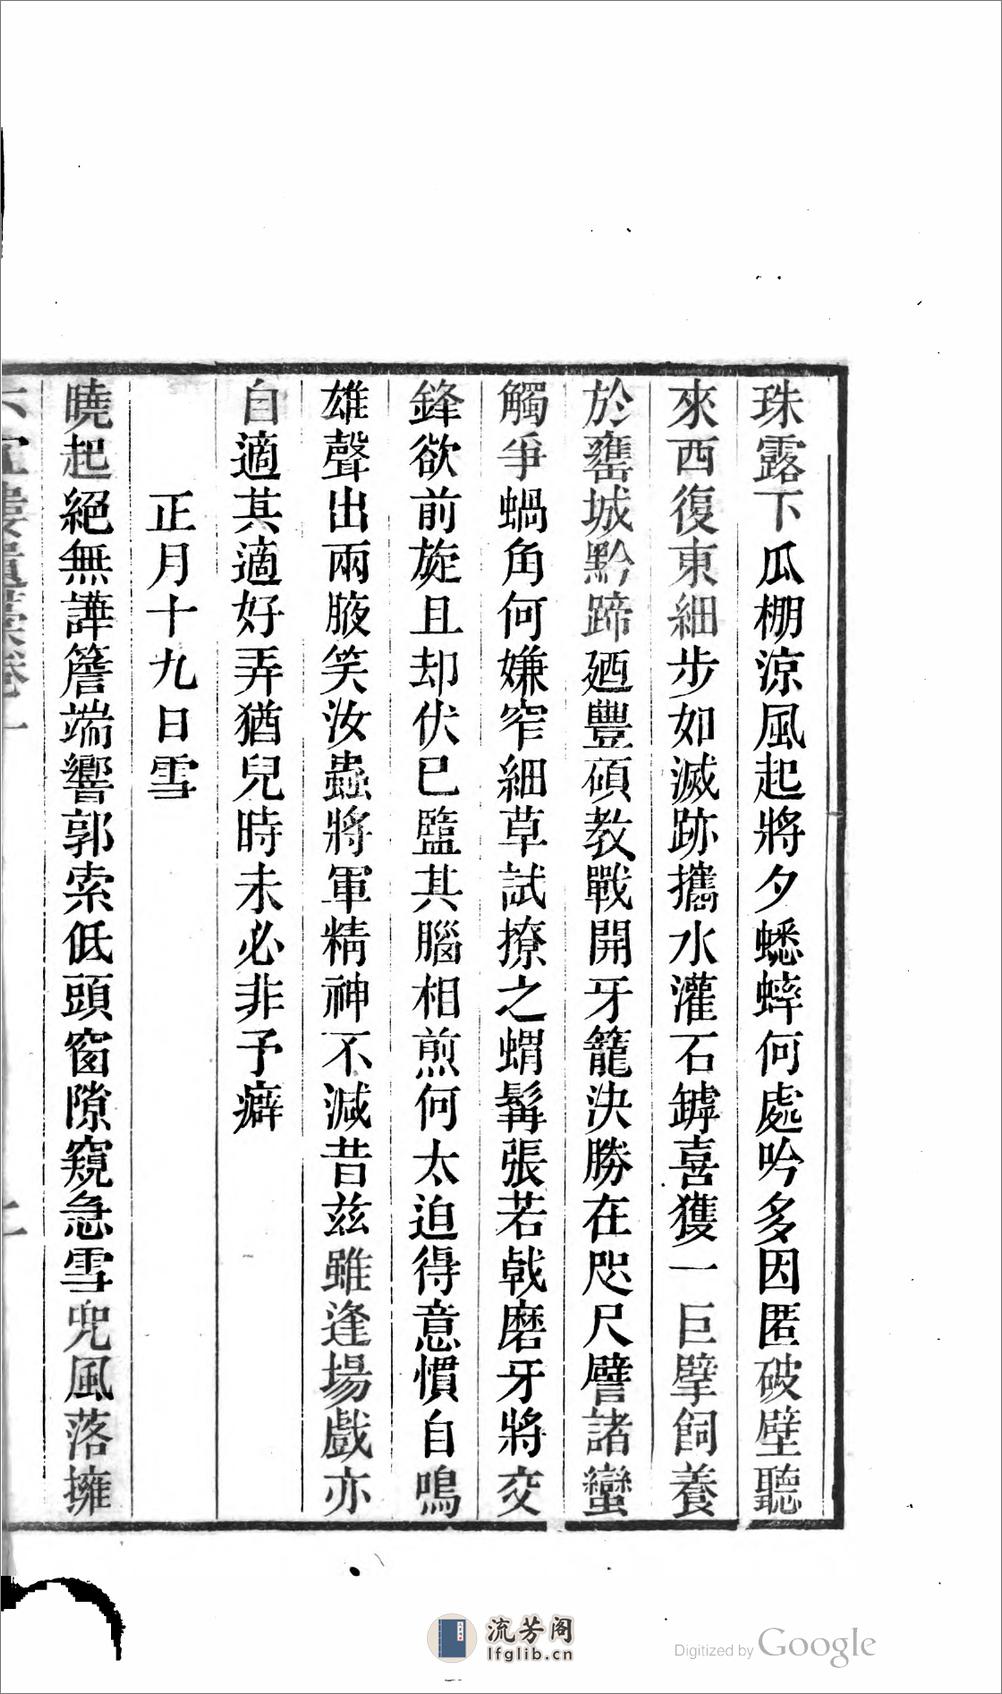 珠露下瓜棚涼風起將夕蟋蟀何處吟多因匿破壁聽
來西復東細步如滅跡攜水灌石罅喜獲一巨擘飼養
於甕城黔蹄廼豐碩教戰開牙籠決勝在咫尺譬諸蠻
觸爭蝸角何嫌窄細草試撩之蝟髯張若戟磨牙將交
鋒欲前旋且却伏已盬其腦相煎何太迫得意慣自鳴
雄聲出兩腋笑汝蟲將軍精神不減昔茲雖逢場戲亦
自適其適好弄猶兒時未必非予癖
正月十九日雪
曉起絕無譁簷端響郭索低頭窗隙窺急雪兜風落擁
流芳阁
lfglib.cn
Digitized by Google